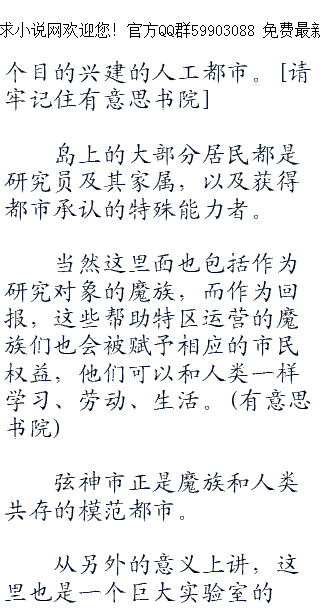 求小说网欢迎您！官方QQ群59903088 免费最新
个目的兴建的人工都市。[请
牢记住有意思书院]
岛上的大部分居民都是
研究员及其家属，以及获得
都市承认的特殊能力者。
当然这里面也包括作为
研究对象的魔族，而作为回
报，这些帮助特区运营的魔
族们也会被赋予相应的市民
权益，他们可以和人类一样
学习、劳动、生活。(有意思
书院)
弦神市正是魔族和人类
共存的模范都市。
从另外的意义上讲，这
里也是一个巨大实验室的